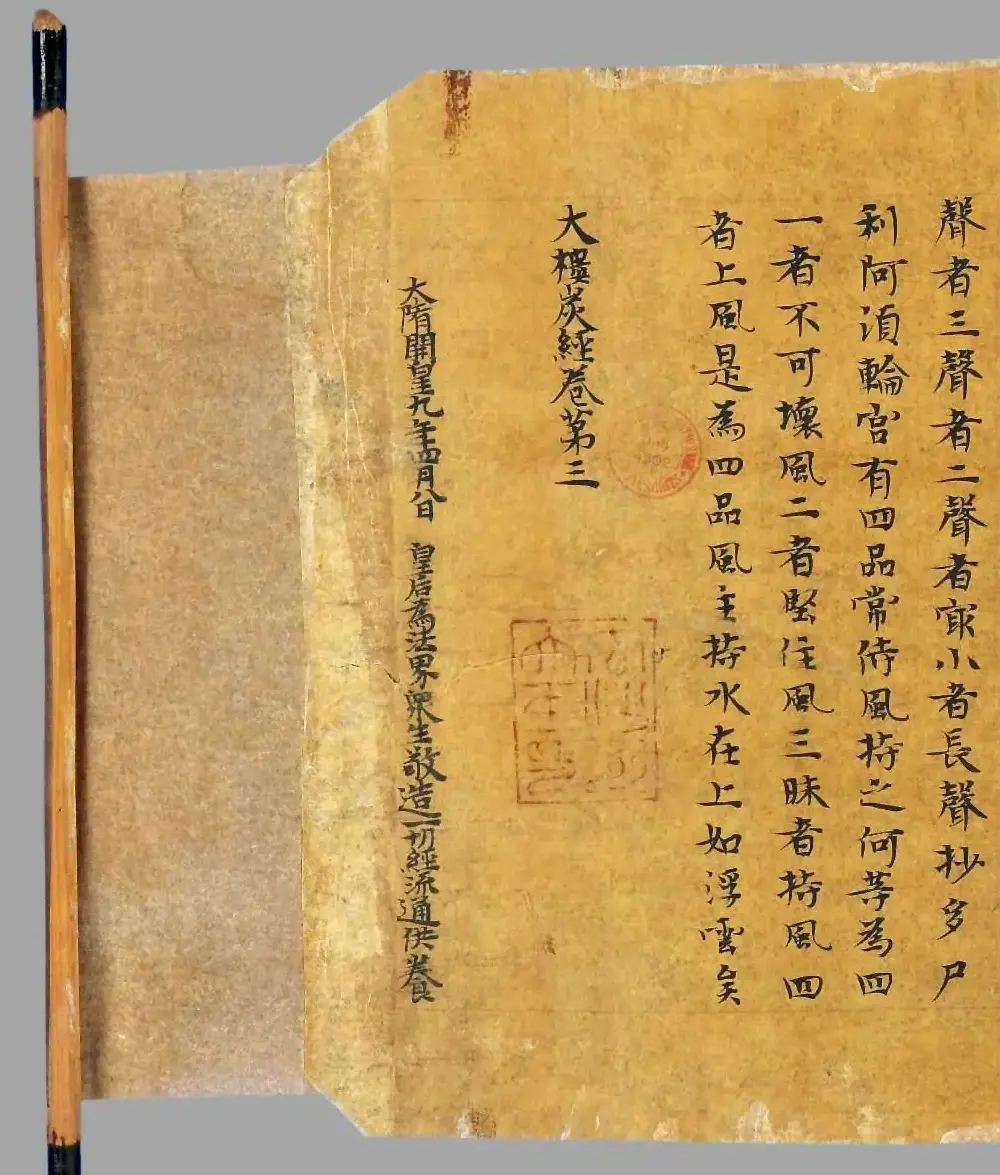 聲者三聲者二聲者㝡小者長聲抄多尸
利阿湏輪宮有四品常侍風持之何等為四
一者不可壞風二者堅住風三昧者持風四
者上風是為四品風主持水在上如浮雲矣
大樓炭經卷第三
大隋開皇九年四月八日 皇后為法界眾生敬造一切經流通供養